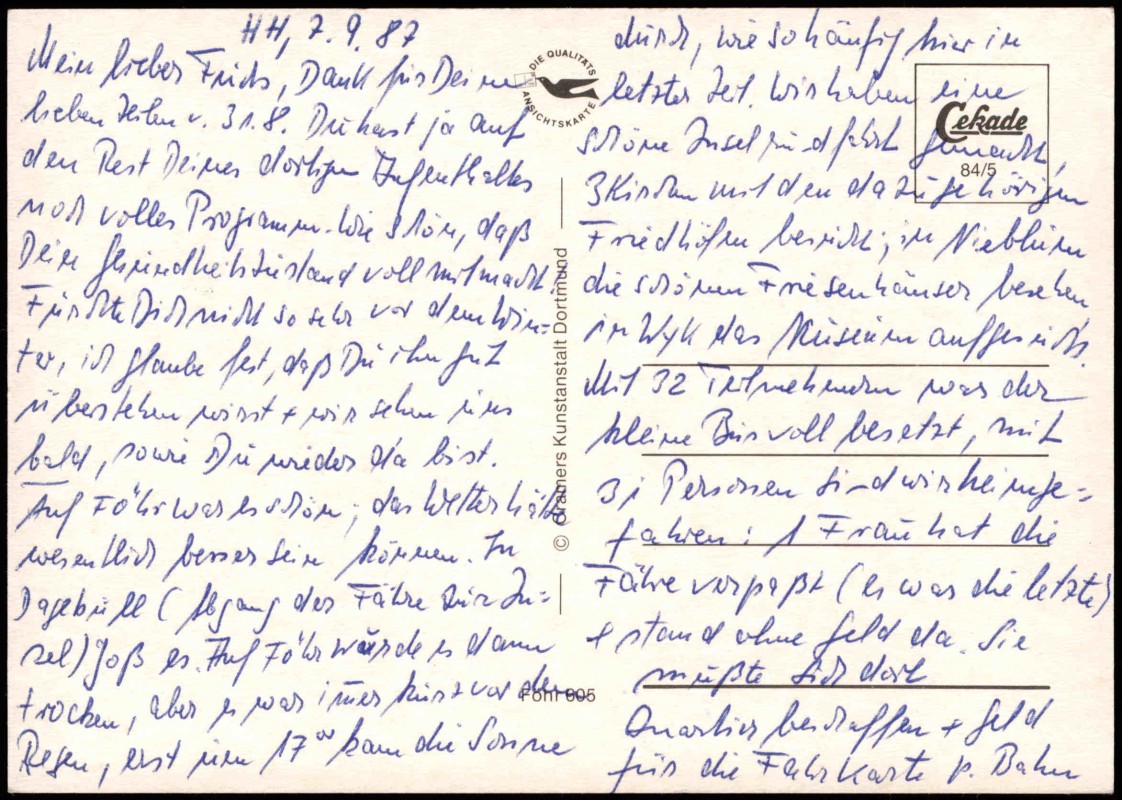 HH, 7.9.87
Mein lieber Frieds, Dank für Deine
lieben Zeilen v. 31.8. Du hast ja auf
den Rest Deines dortigen Aufenthaltes
noch volles Programm. Wie schön, daß
Dein Gesundheitszustand voll mitmacht.
Fürchte Dich nicht so sehr vor dem Win=
ter, ich glaube fest, daß Du ihn gut
überstehen wirst + wir sehen uns
bald, sowie Du wieder da bist.
Auf Föhr war es schön; das Wetter hätte
wesentlich besser sein können. In
Dagebüll (Abgang der Fähre zur In=
sel) goß es. Auf Föhr wurde es dann
trocken, aber es war immer kurz vor dem
Regen, erst um 17⁰⁰ kam die Sonne
durch, wie so häufig hier in
letzter Zeit. Wir haben eine
schöne Inselrundfahrt gemacht,
3 Kirchen mit den dazugehörigen
Friedhöfen besucht; in Nieblum
die schönen Friesenhäuser besehen
in Wyk das Museum aufgesucht.
Mit 32 Teilnehmern war der
kleine Bus voll besetzt, mit
31 Personen sind wir heimge=
fahren: 1 Frau hat die
Fähre verpaßt (es war die letzte)
+ stand ohne Geld da. Sie
mußte sich dort
Quartier beschaffen + Geld
für die Fahrkarte p. Bahn
DIE QUALITÄTS
ANSICHTSKARTE
Cekade
84/5
© Cramers Kunstanstalt Dortmund
Föhr 605